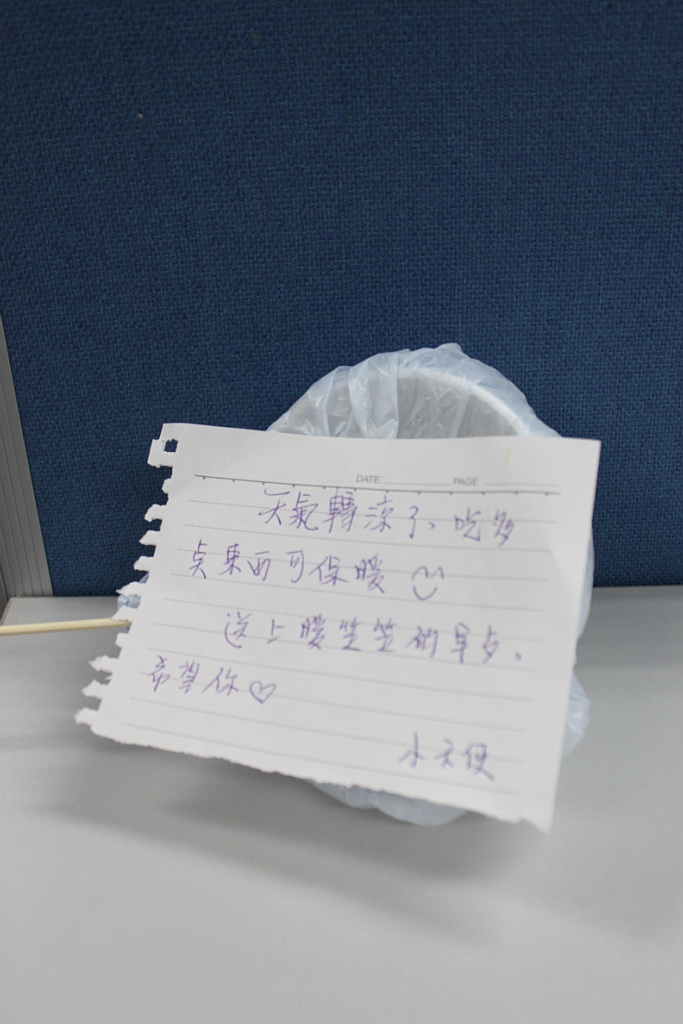 DATE: PAGE:
天氣轉涼了、吃多
点東西可保暖
送上暖笠笠的早点、
希望你♡
小天使